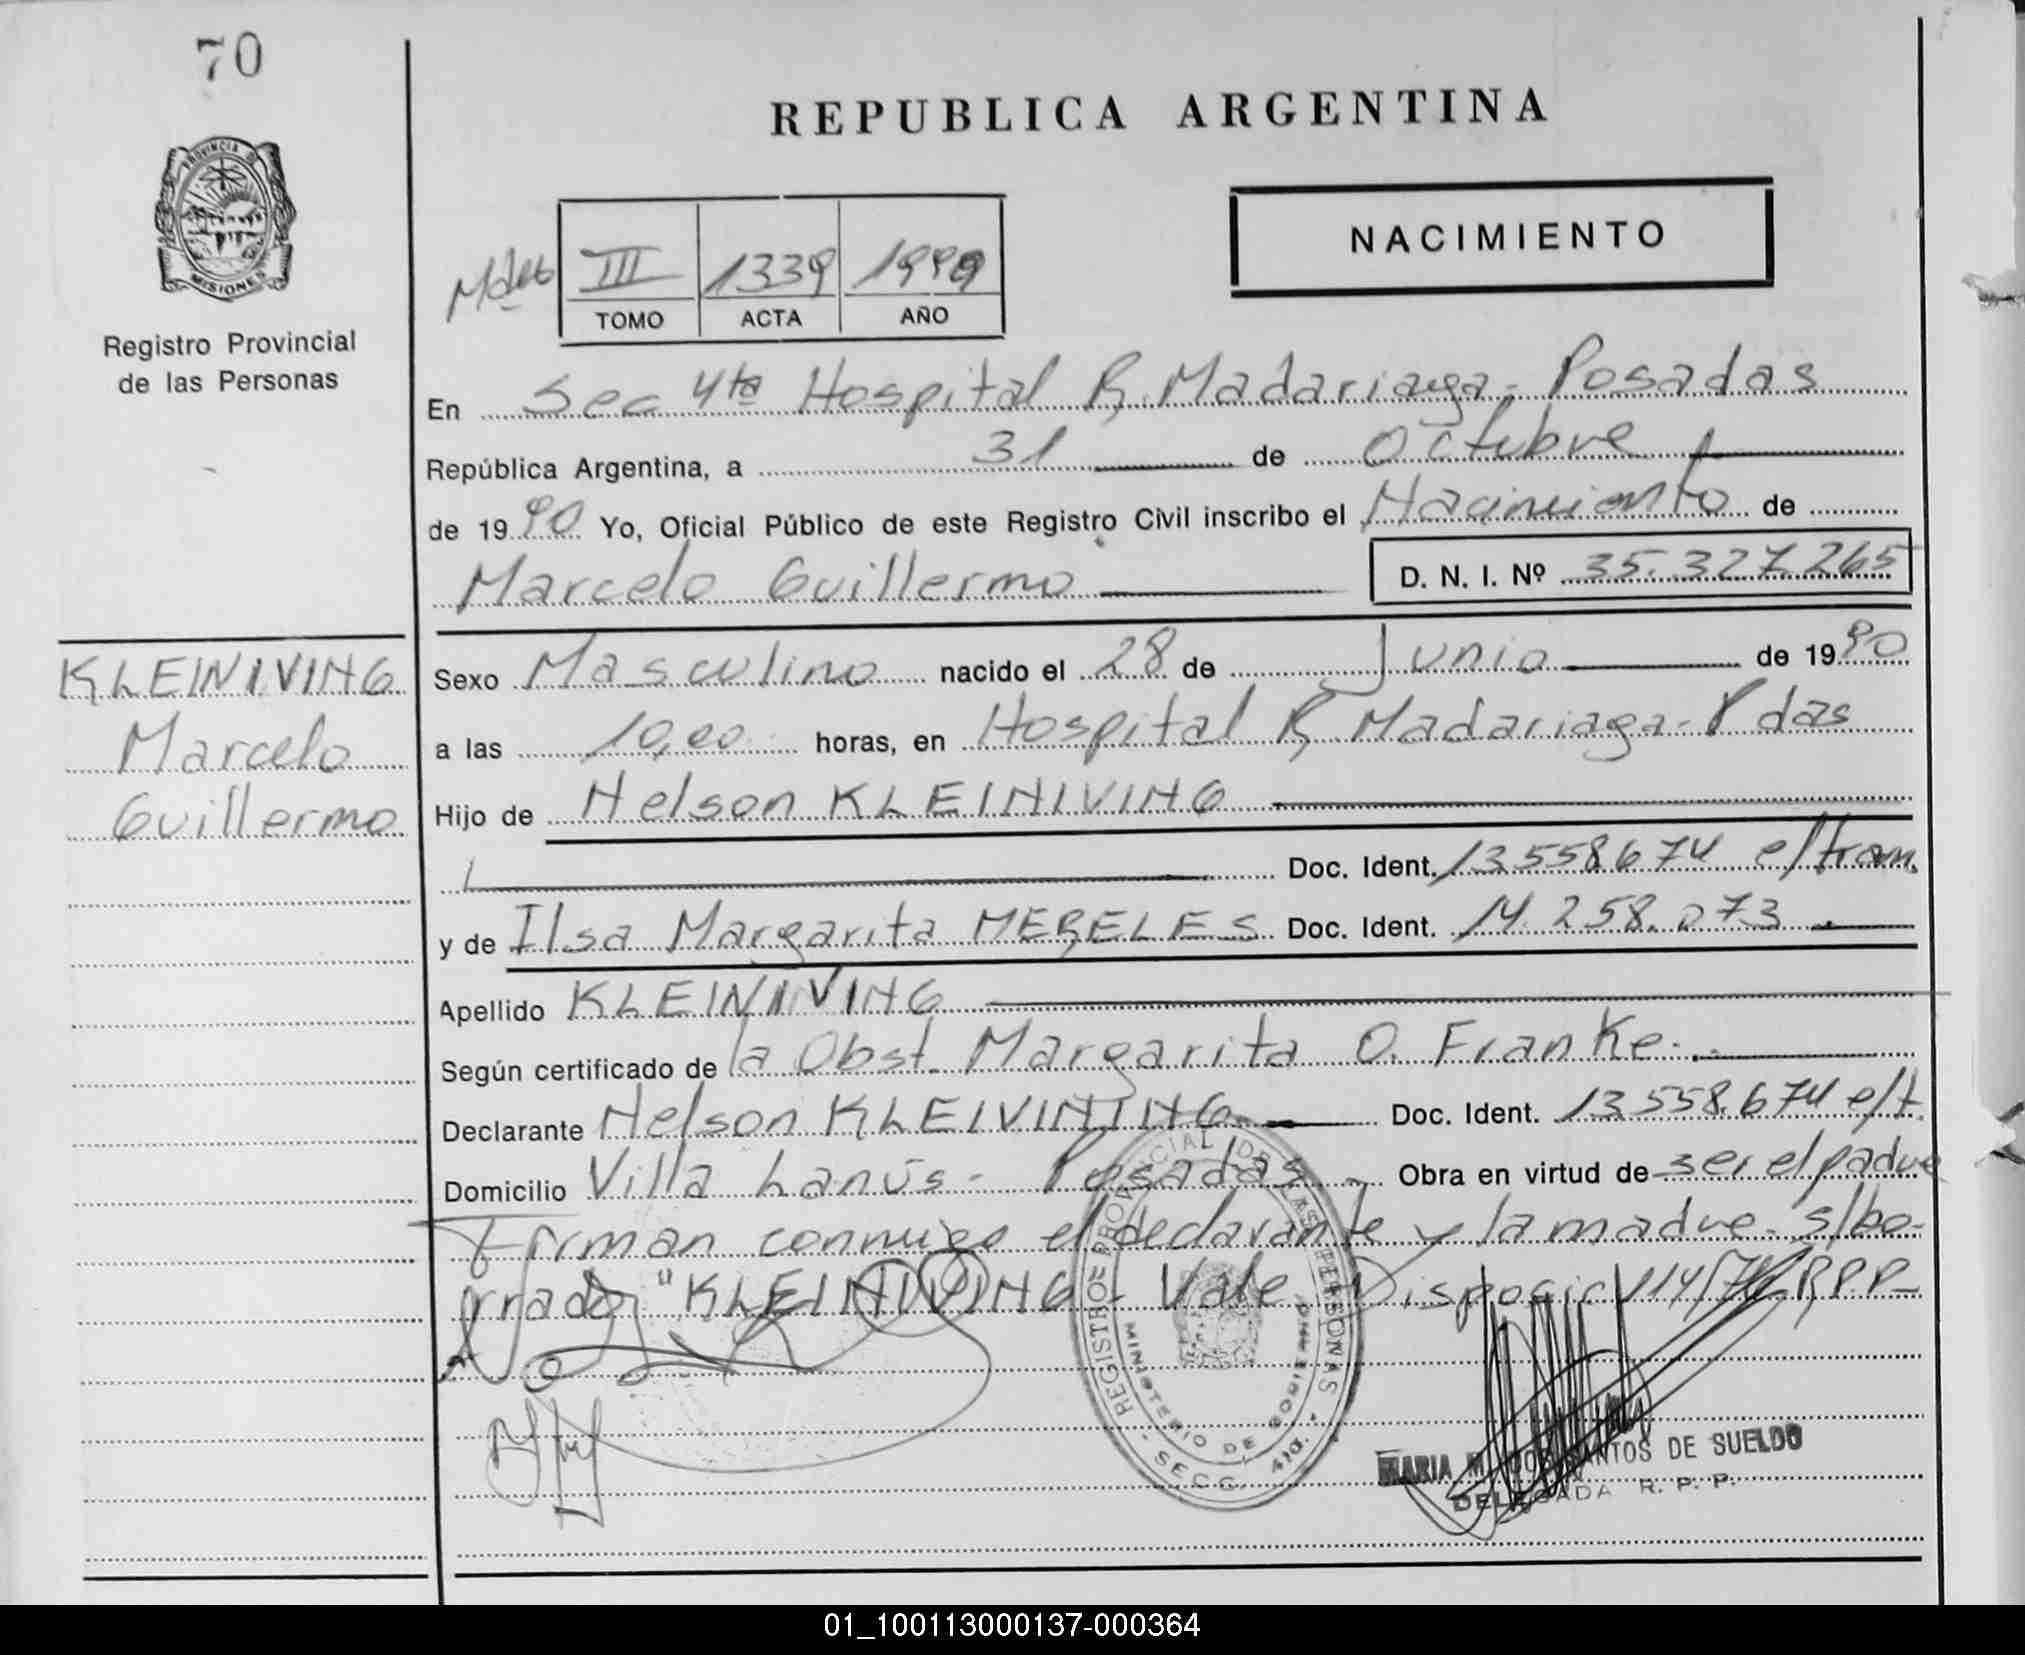 70
REPUBLICA ARGENTINA
PROVINCIA DE MISIONES
Registro Provincial
de las Personas
NACIMIENTO
III 1339 1990
TOMO ACTA AÑO
En Sec 4ta Hospital R. Madariaga - Posadas
República Argentina, a 31 de Octubre
de 1990 Yo, Oficial Público de este Registro Civil inscribo el Nacimiento de
Marcelo Guillermo D. N. I. Nº 35.327.265
KLEINIVING
Marcelo
Guillermo
Sexo Masculino nacido el 28 de Junio de 1990
a las 10,00 horas, en Hospital R. Madariaga - Pdas
Hijo de Nelson KLEINIVING
Doc. Ident. 13558674 e/tram.
y de Ilsa Margarita MERELES Doc. Ident. 14.258.073
Apellido KLEINIVING
Según certificado de la Obst. Margarita O. Franke.
Declarante Nelson KLEIVINING Doc. Ident. 13.558.674 e/t.
Domicilio Villa Lanús - Posadas Obra en virtud de ser el padre
Firman conmigo el declarante y la madre - s/bo-
rrado "KLEINIVING" Vale Disposic 114/74 RPP-
REGISTRO PROVINCIAL DE LAS PERSONAS
MINISTERIO DE GOBIERNO
SECC. 4ta.
MARIA M. DOS SANTOS DE SUELDO
DELEGADA R. P. P.
01_100113000137-000364